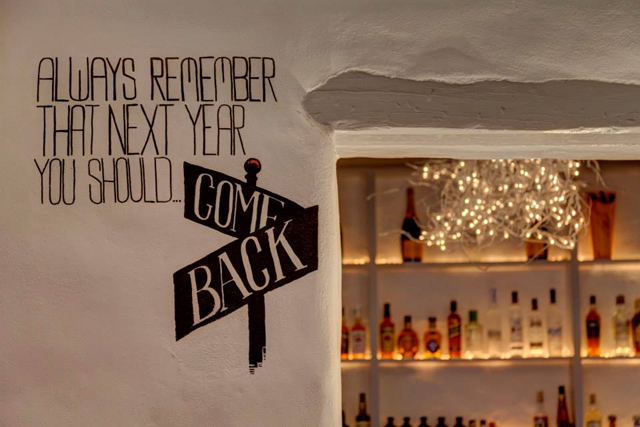 ALWAYS REMEMBER
THAT NEXT YEAR
YOU SHOULD...
COME
BACK